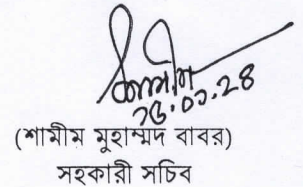 ২৫.০১.২৪
(শামীম মুহাম্মদ বাবর)
সহকারী সচিব